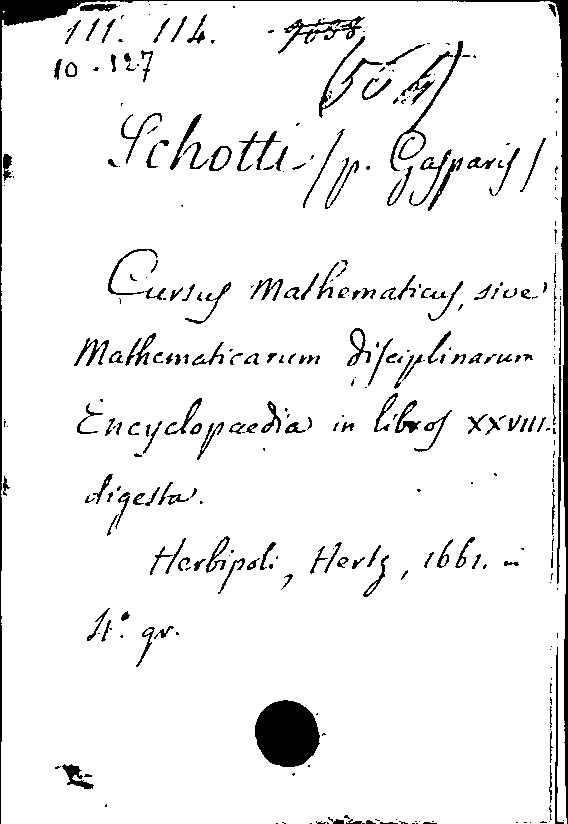 111. 114.
10.127
Schotti /p. Gasparis/
Cursus Mathematicus, sive
Mathematicarum disciplinarum
Encyclopaedia in libros XXVIII.
digesta.
Herbipoli, Hertz, 1661. in
4° gr.